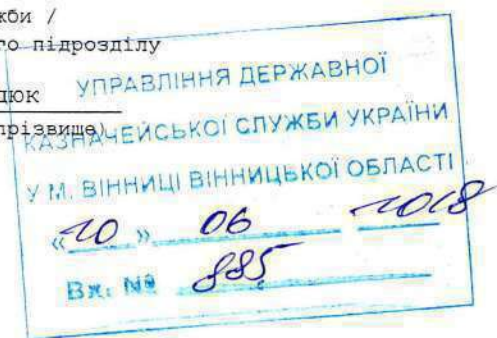 жби /
го підрозділу
дюк
прізвище)
УПРАВЛІННЯ ДЕРЖАВНОЇ
КАЗНАЧЕЙСЬКОЇ СЛУЖБИ УКРАЇНИ
У М. ВІННИЦІ ВІННИЦЬКОЇ ОБЛАСТІ
«20» 06 2018
Вх. № 885